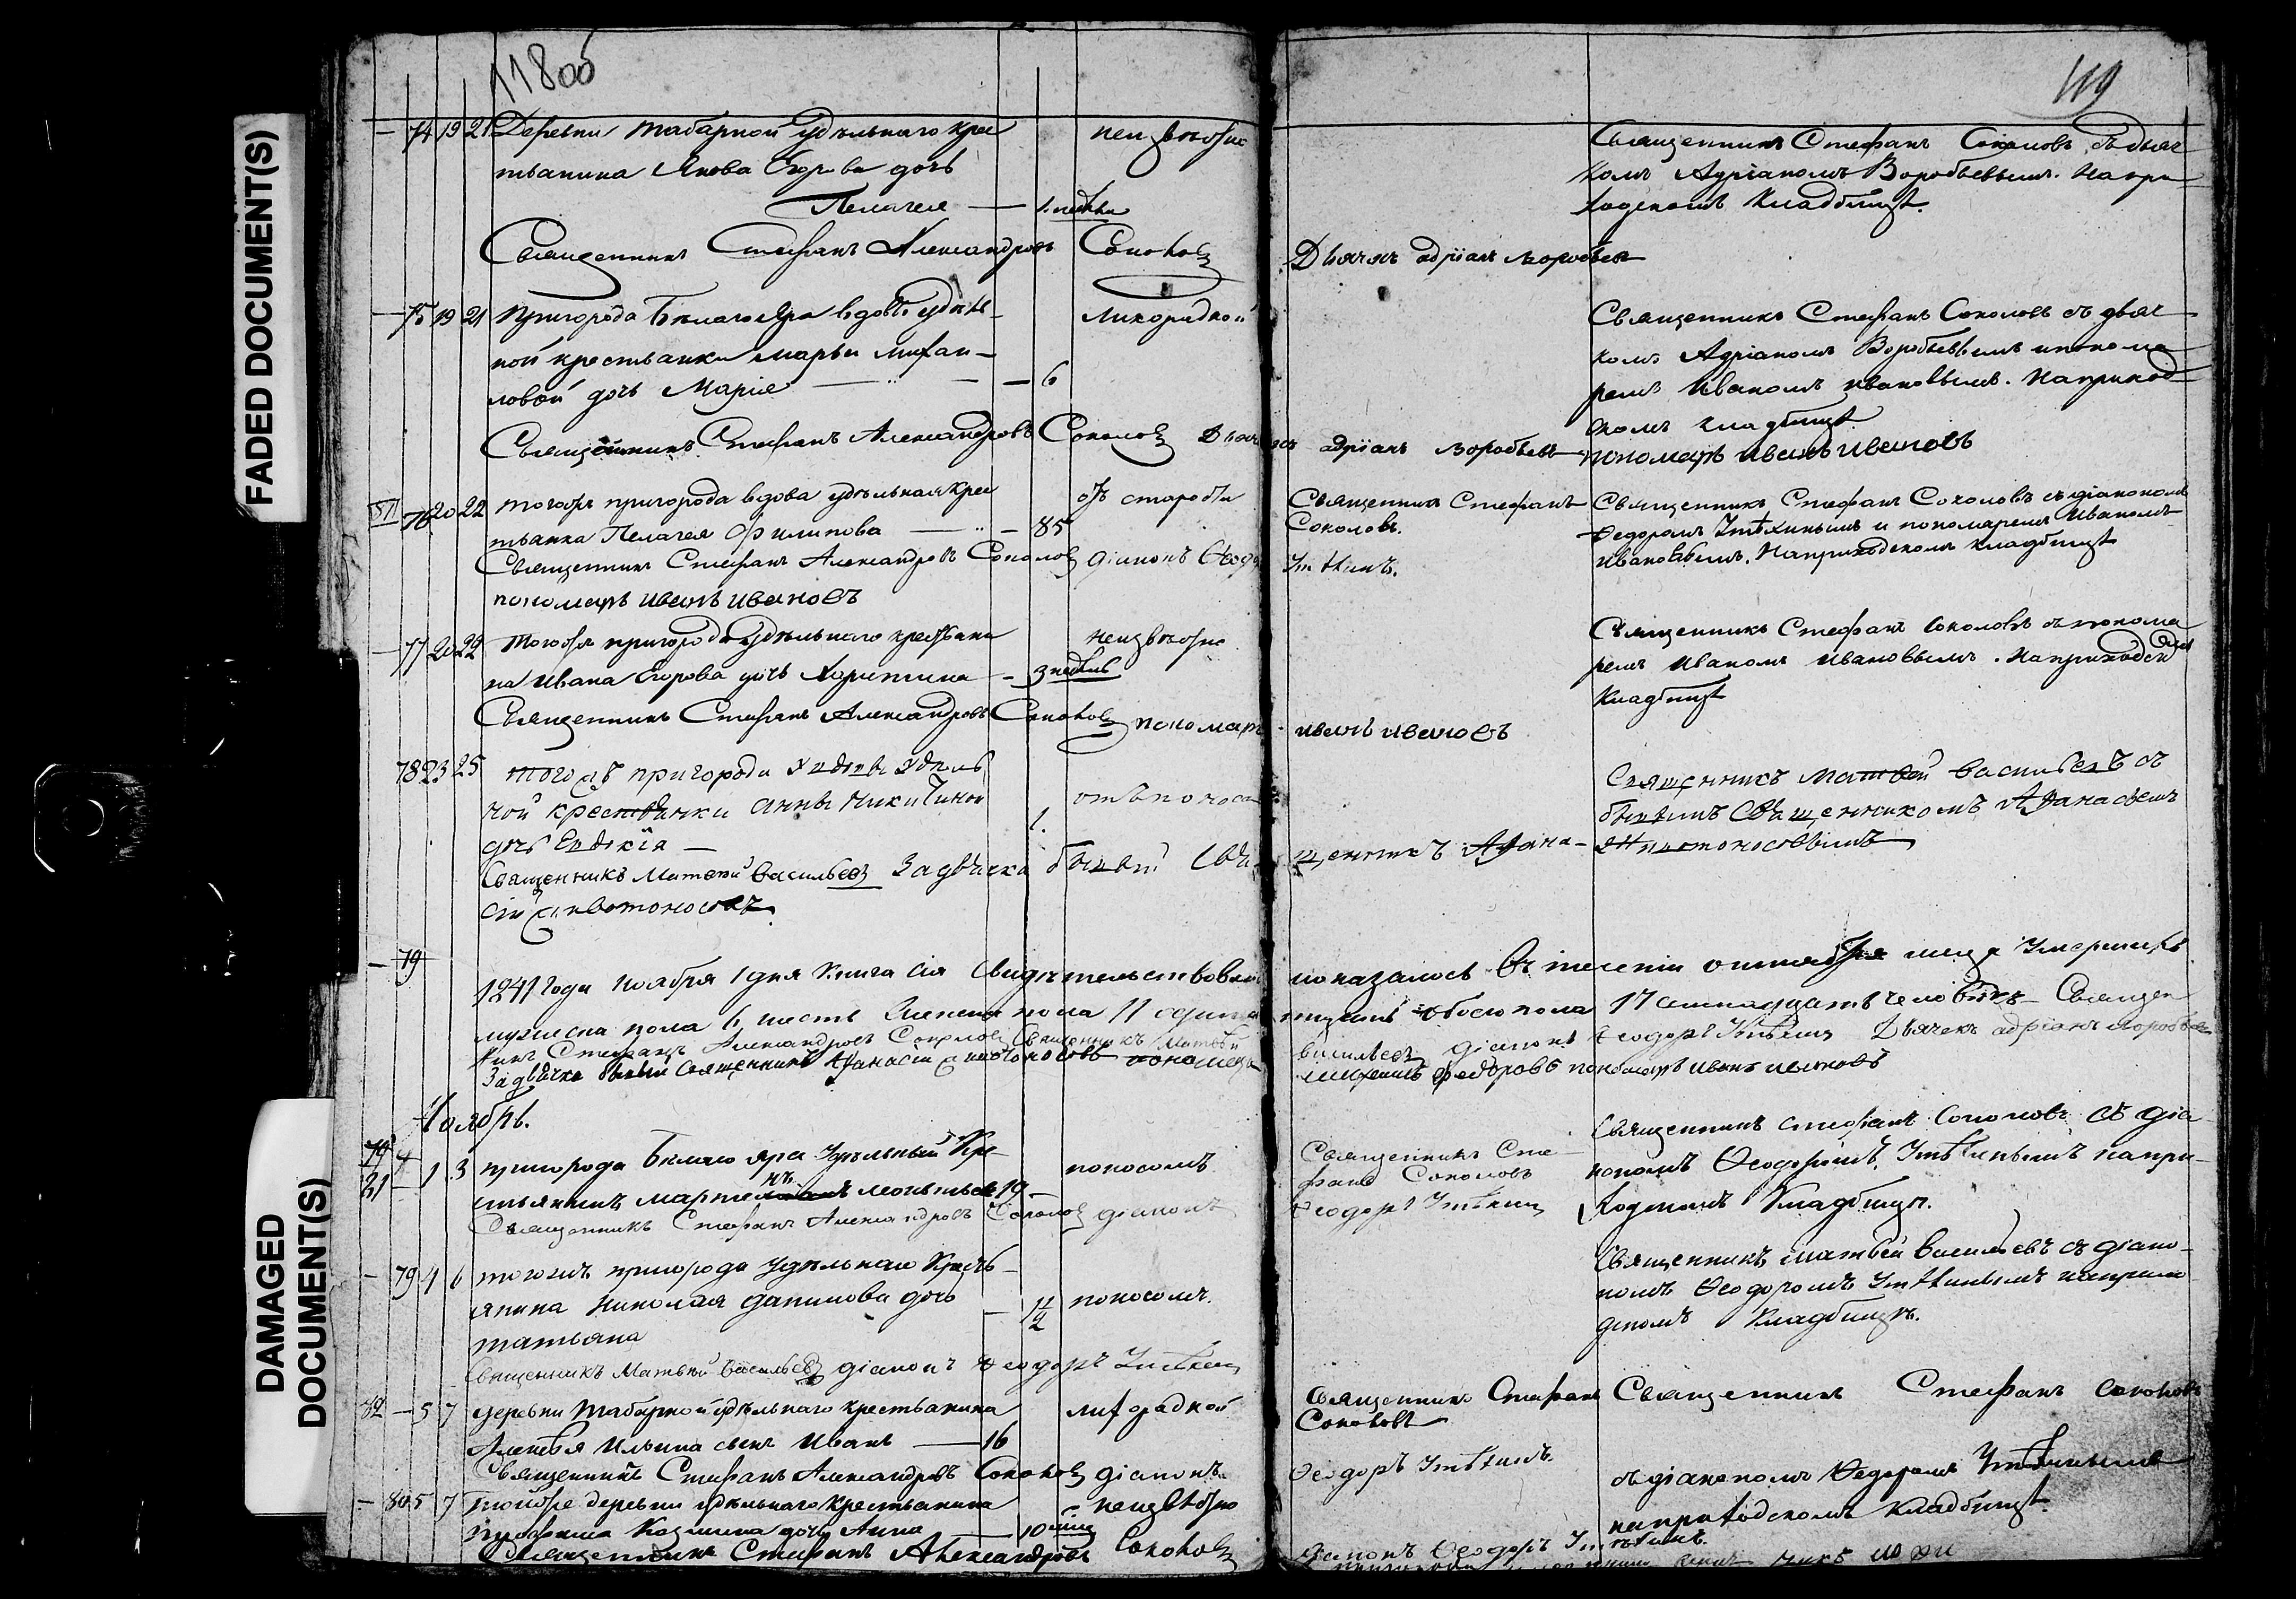 FADED DOCUMENT(S)
DAMAGED
DOCUMENT(S)
118об
119
74 19 21 Деревни Табарной удѣльнаго крес
тьянина Якова Егорова дочь
Пелагея — 1. недѣли
неизвѣстно
Священникъ Стефанъ Соколовъ съ дьяч
комъ Адріаномъ Воробьевымъ. На при
ходскомъ Кладбищѣ.
Священникъ Стефанъ Александровъ Соколовъ Дьячекъ адріанъ воробьев
75 19 21 Пригорода Бѣлаго Яра вдовы удѣль
ной крестьянки Марьи Михаи-
ловой дочь Марія — 6
лихорадкой
Священникъ Стефанъ Соколовъ съ дьяч
комъ Адріаномъ Воробьевымъ и понома
ремъ Иваномъ Ивановымъ. На приход
скомъ кладбищѣ
Священникъ Стефанъ Александровъ Соколовъ Дьячекъ адріанъ воробьевъ пономарь иванъ ивановъ
76 20 22 Тогоже пригорода вдова удѣльная крес
тьянка Пелагея Филипова — 85
отъ старости
Священникъ Стефанъ
Соколовъ.
Священникъ Стефанъ Соколовъ съ діакономъ
Федоромъ Утѣхинымъ и пономаремъ Иваномъ
Ивановымъ. На приходскомъ кладбищѣ
Священникъ Стефанъ Александровъ Соколовъ діаконъ Ѳеодоръ Утѣхинъ.
пономарь иванъ ивановъ
77 20 22 Тогоже пригорода удѣльнаго крестьяни
на Ивана Егорова дочь Харитина — 3 недѣль
неизвѣстно
Священникъ Стефанъ Соколовъ съ понома
ремъ Иваномъ Ивановымъ. На приходском
Кладбищѣ
Священникъ Стефанъ Александровъ Соколовъ пономарь иванъ ивановъ
78 23 25 тогожъ пригорода вдовы удѣль
ной крестьянки Анны Никитиной
дочь Евдокія — 1.
отъ поноса
Священникъ Матвей Васильевъ съ
бывшимъ Священникомъ Афанасіемъ
Животоносовымъ
Священникъ Матвей Васильевъ За дьячка бывый Священникъ Афана-
сій Животоносовъ
79
1841 Года Ноября 1 дня Книга сія Свидѣтельствована показалось Въ теченіи октября месяца Умершихъ
мужеска пола 6 шесть Женска пола 11 одинна обоего пола 17 семнадцать человѣкъ Священ
никъ Стефанъ Александровъ Соколовъ Священникъ Матвей Васильевъ діаконъ Ѳеодоръ Утѣхинъ Дьячекъ адріанъ воробьев
За дьячка бывый Священникъ Афанасій Животоносовъ пономарь федоровъ пономарь иванъ ивановъ
Ноябрь.
1 3 пригорода Бѣлаго яра Удѣльный Кре-
стьянинъ Леонтьевъ 19
поносомъ
Священникъ Сте
фанъ Соколовъ
Священникъ Стефанъ Соколовъ съ діа
кономъ Ѳеодоромъ Утѣхинымъ на при-
ходскомъ Кладбищѣ.
Священникъ Стефанъ Александровъ Соколовъ діаконъ Ѳеодоръ Утѣхинъ
79 4 6 тогожъ пригорода Удѣльнаго Кресть
янина Николая Данилова дочь
татьяна
1 1/2
поносомъ.
Священникъ Матвей Васильевъ съ діако-
номъ Ѳеодоромъ Утѣхинымъ на прихо
дскомъ Кладбищѣ.
Священникъ Матвей Васильевъ діаконъ Ѳеодоръ Утѣхинъ
82 — 5 7 деревни Табарной удѣльнаго крестьянина
Алексѣя Ильина сынъ Иванъ — 16
лихорадкой
Священникъ Стефанъ
Соколовъ
Священникъ Стефанъ Соколовъ
Священникъ Стефанъ Александровъ Соколовъ діаконъ Ѳеодоръ Утѣхинъ.
съ діакономъ Федоромъ Утѣхинымъ
на приходскомъ Кладбищѣ.
80 5 7 Тойже деревни удѣльнаго крестьянина
Козмина дочь Анна — 10
неизвѣстно
Священникъ Стефанъ Александровъ Соколовъ діаконъ Ѳеодоръ Утѣхинъ.